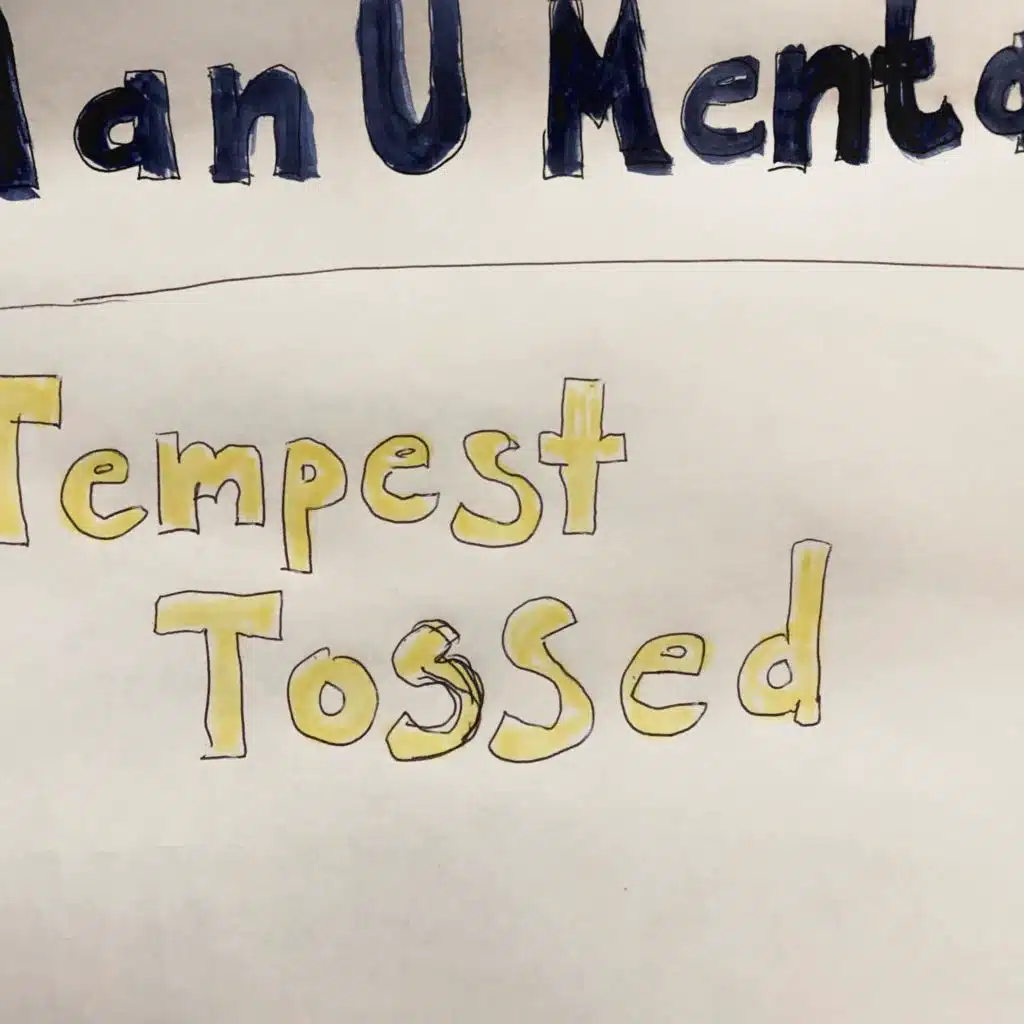 an U Ment
Tempest
Tossed